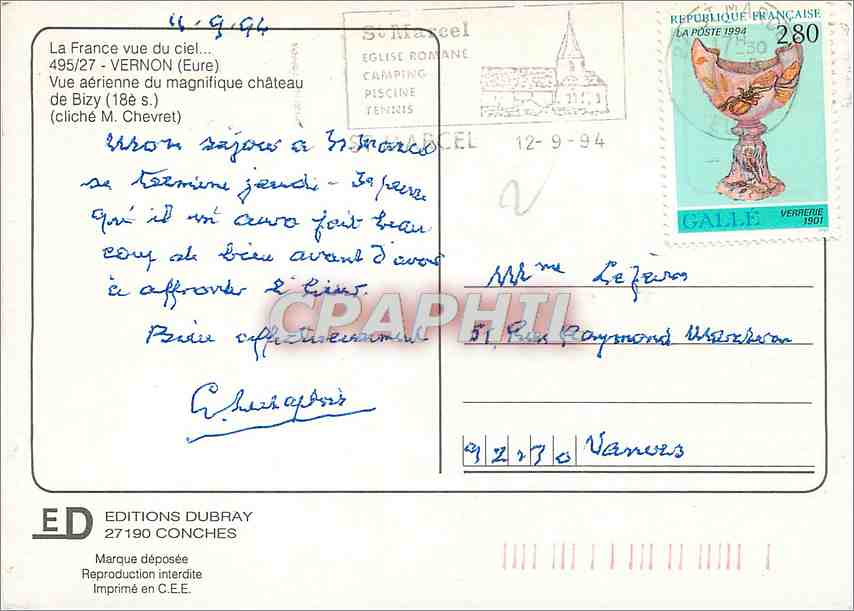 11.9.94
La France vue du ciel...
495/27 - VERNON (Eure)
Vue aérienne du magnifique château
de Bizy (18è s.)
(cliché M. Chevret)
St Marcel
EGLISE ROMANE
CAMPING
PISCINE
TENNIS
MARCEL 12-9-94
REPUBLIQUE FRANÇAISE
LA POSTE 1994 2,80
GALLÉ VERRERIE
1901
Mon séjour a St Marcel
se termine jeudi - Je pense
qu'il m'aura fait beau
coup de bien avant d'avoir
à affronter l'hiver.
Bien affectueusement
Mme
51, Rue Raymond Marcheron
92170 Vanves
CPAPHIL
ED EDITIONS DUBRAY
27190 CONCHES
Marque déposée
Reproduction interdite
Imprimé en C.E.E.